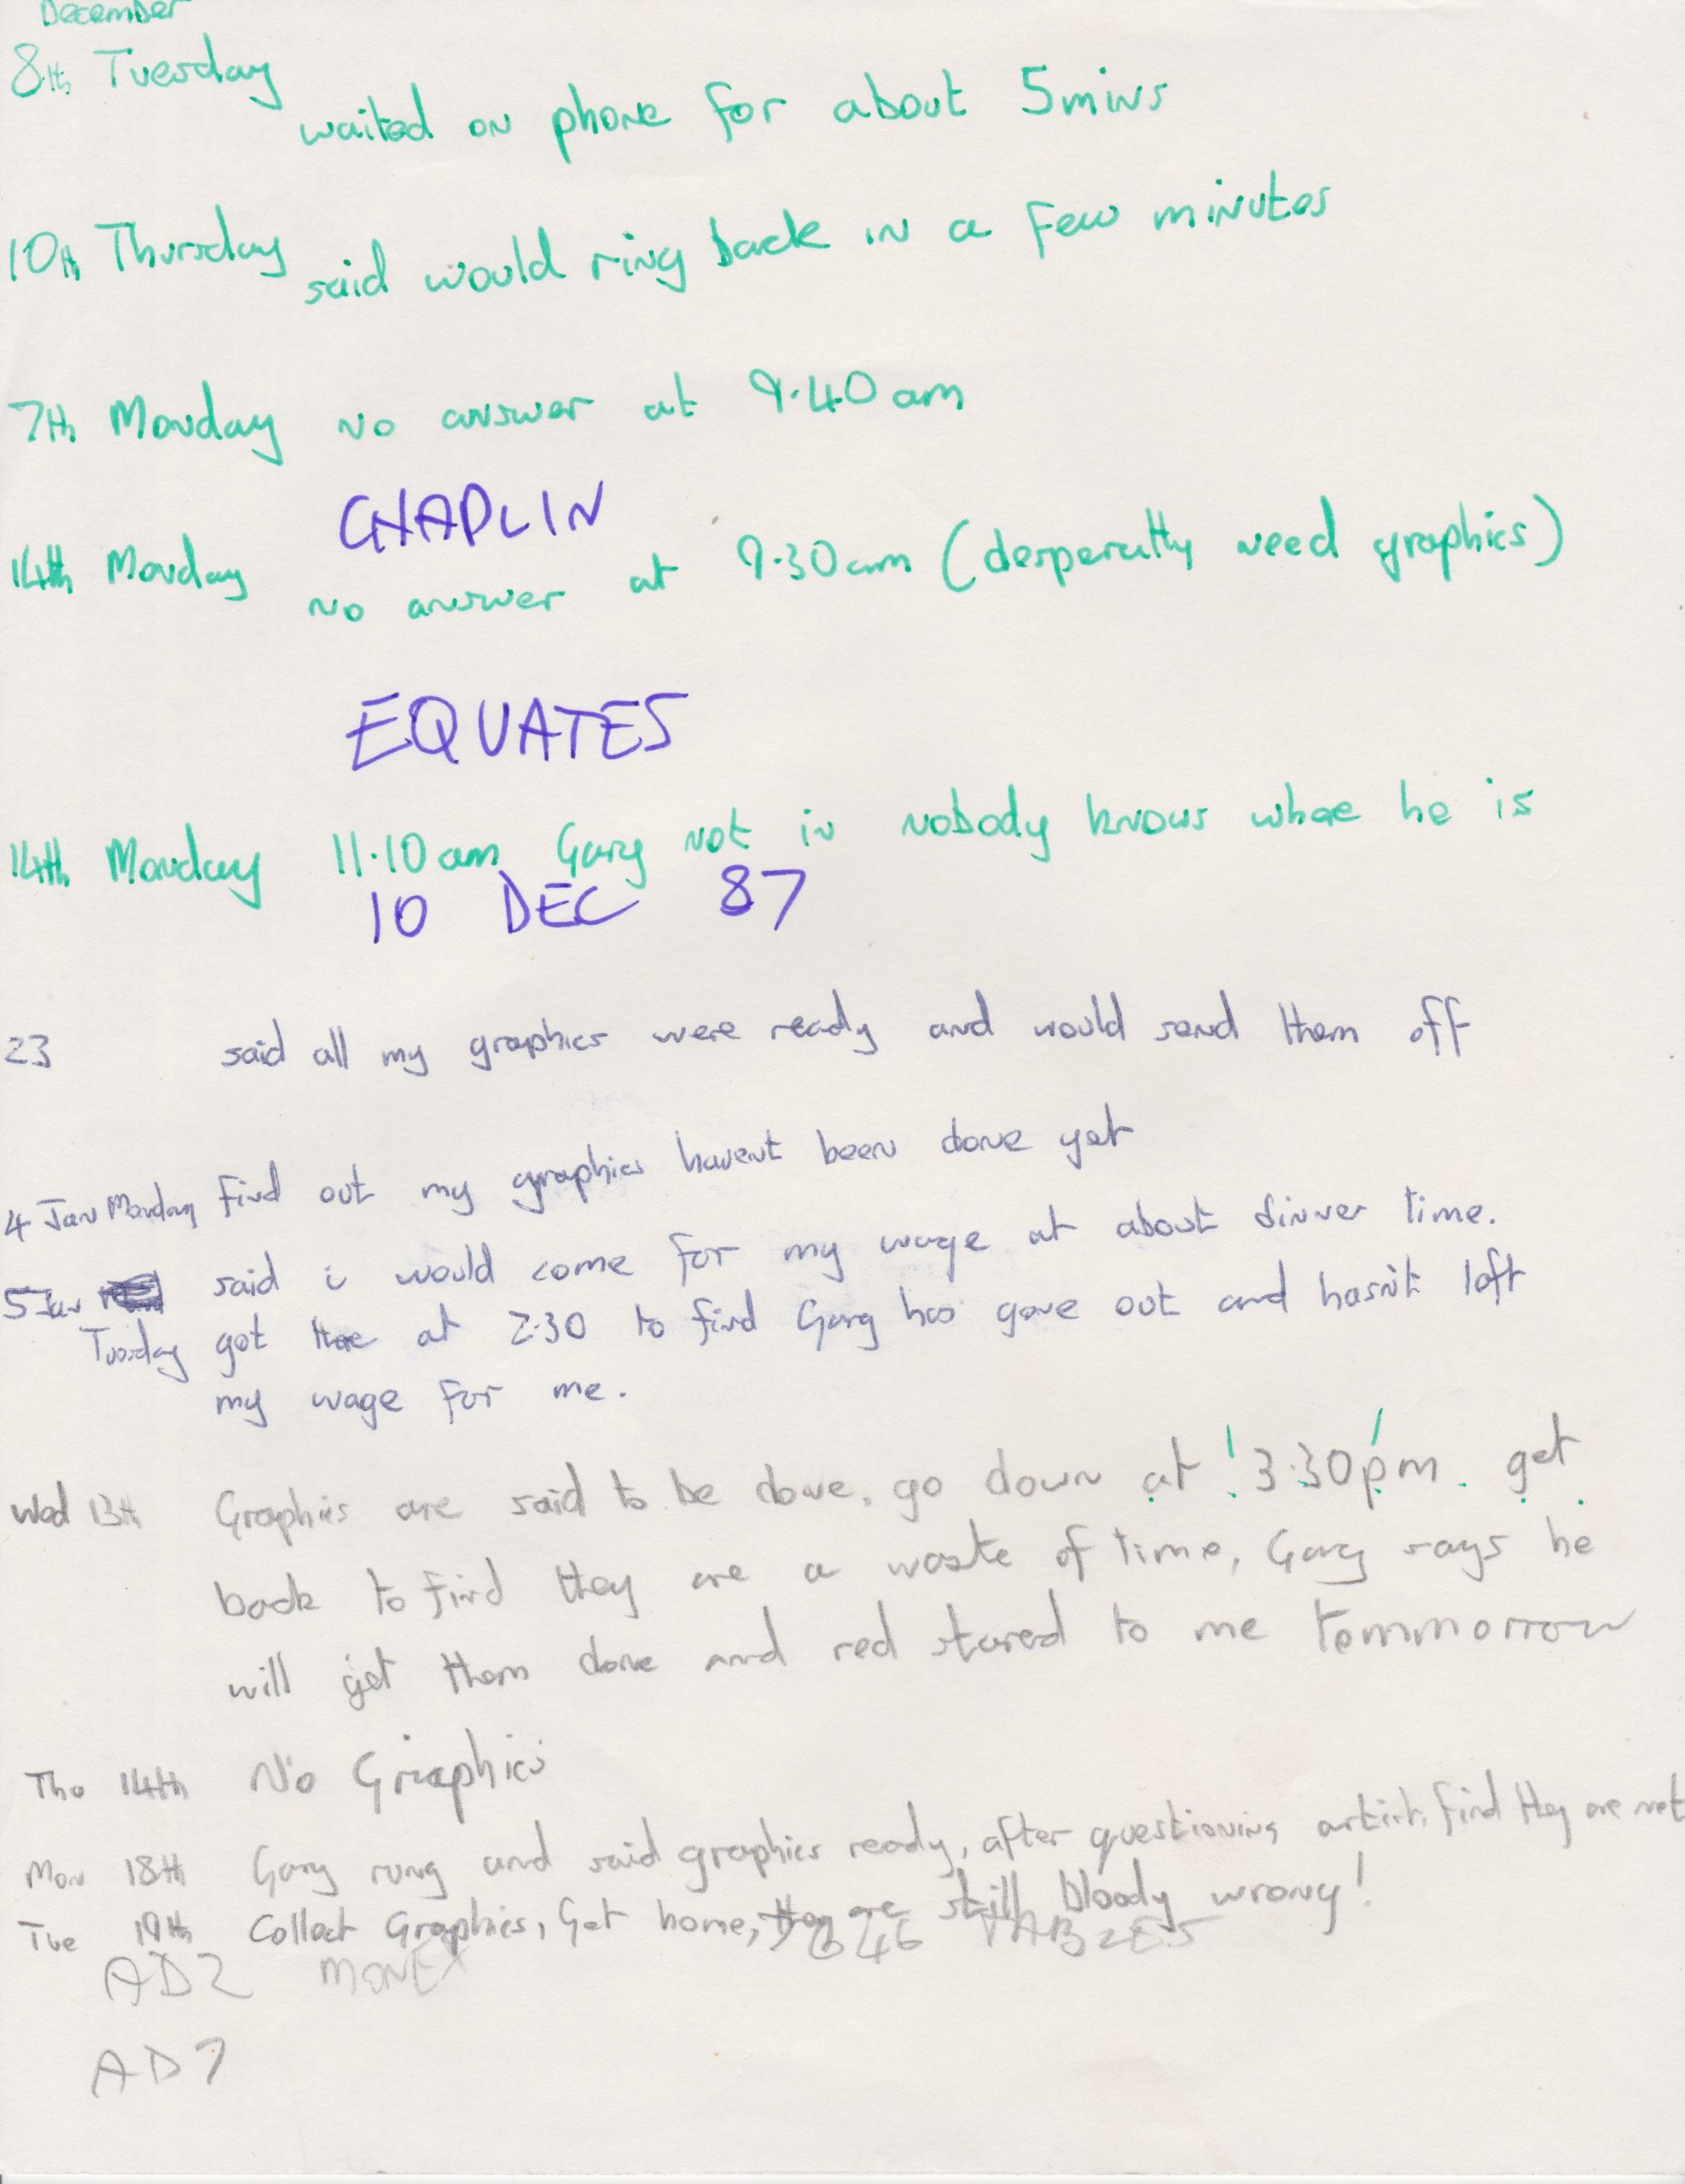 December
8th Tuesday waited on phone for about 5mins
10th Thursday said would ring back in a few minutes
7th Monday no answer at 9.40am
CHAPLIN
14th Monday no answer at 9.30am (desperatly need graphics)
EQUATES
14th Monday 11.10am Gary not in nobody knows where he is
10 DEC 87
23 said all my graphics were ready and would send them off
4 Jan Monday find out my graphics havent been done yet
5 Jan said i would come for my wage at about dinner time.
Tuesday got there at 2.30 to find Gary has gone out and hasn't left
my wage for me.
Wed 13th Graphics are said to be done, go down at 3.30pm. get
back to find they are a waste of time, Gary says he
will get them done and red stared to me tommorrow
Thu 14th No Graphics
Mon 18th Gary rung and said graphics ready, after questioning artist, find they are not
Tue 19th Collect Graphics, Get home, they are still bloody wrong!
AD2 MONEY
AD7